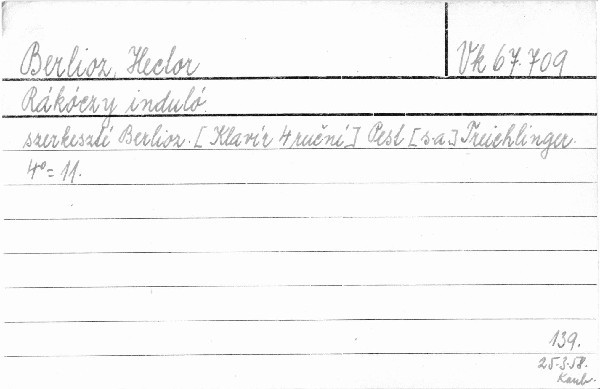 Berlioz, Hector
Vk 67.709
Rákóczy induló.
szerkeszté Berlioz. [Klavír 4ruční] Pest [s.a.] Treichlinger.
4° = 11.
139.
25.3.58.